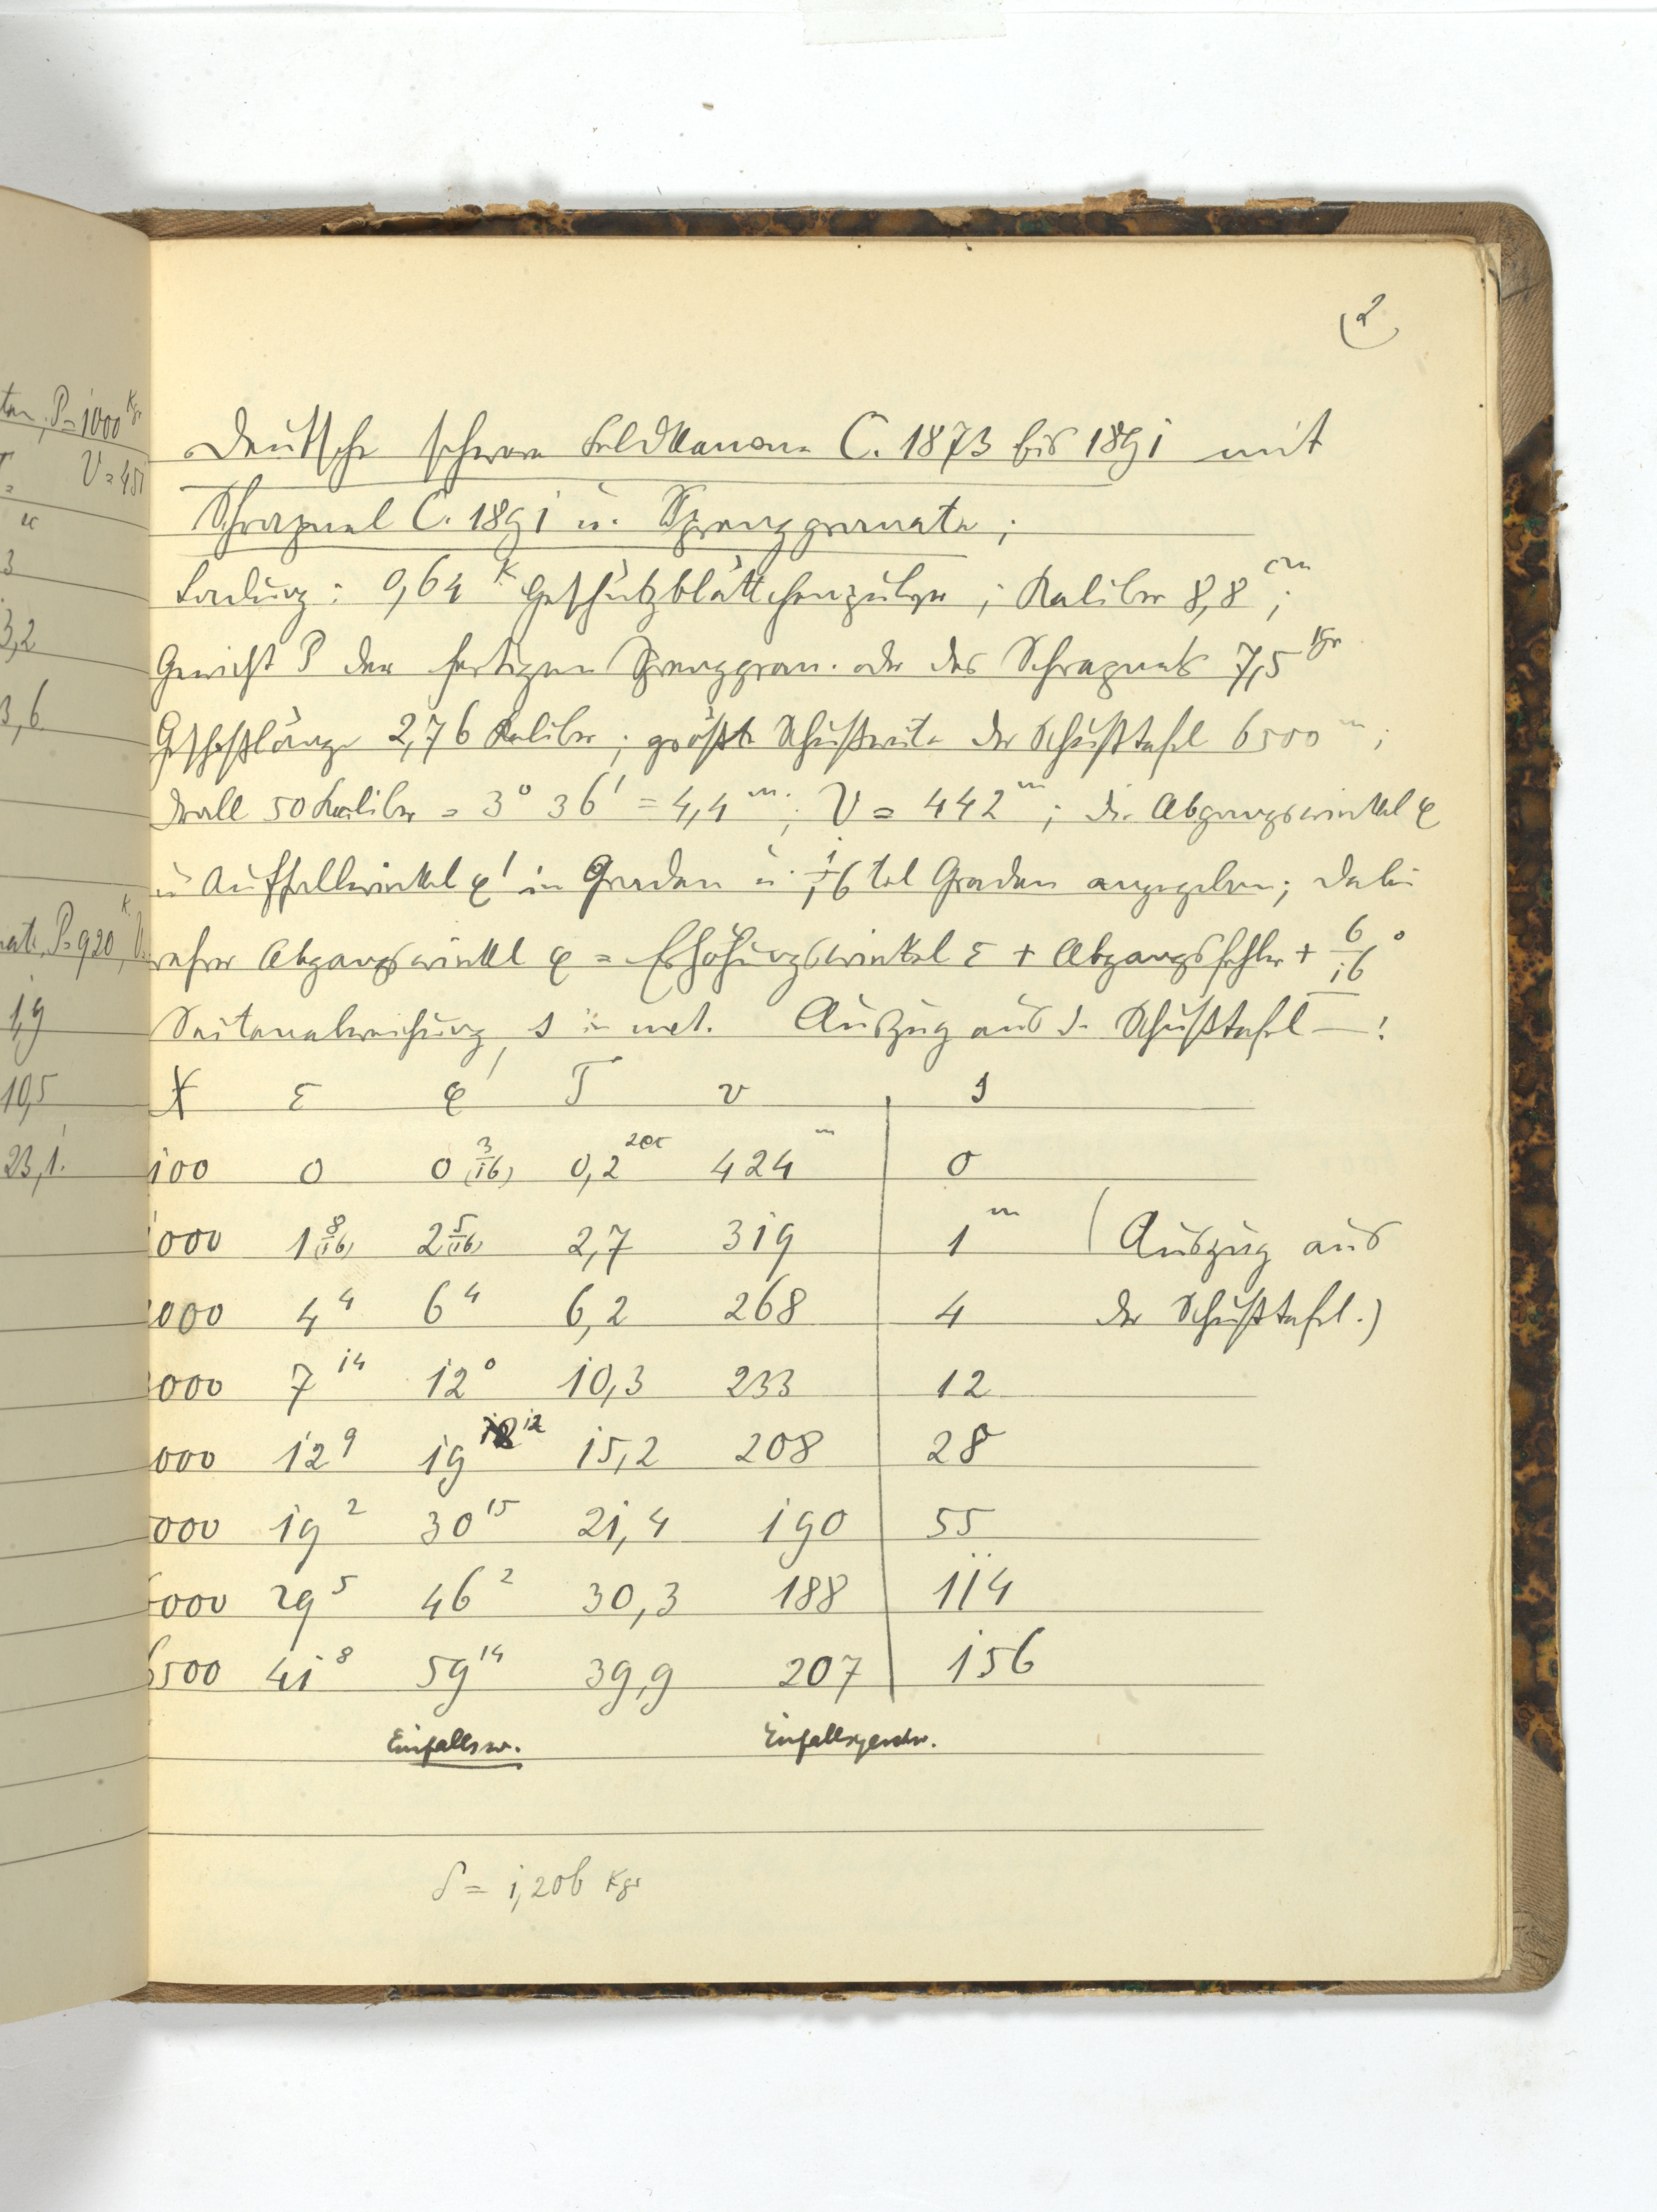 2
Deutsche schwere Feldkanone C. 1873 bis 1891 mit
Schrapnel C. 1891 u. Sprenggranate;
Ladung: 0,64 K Geschützblättchenpulver; Kaliber 8,8 cm;
Gewicht P der fertigen Sprenggran. oder des Schrapnels 7,5 Kgr
Geschoßlänge 2,76 Kaliber; größte Schußweite der Schußtafel 6500 m;
Drall 50 Kaliber = 3° 36' = 4,4 m; V = 442 m; die Abgangswinkel φ
u Auffallwinkel φ' in Graden u. 1/16 tel Graden angegeben; dabei
Abgangswinkel φ = Erhöhungswinkel ε + Abgangsfehler + 6/16°
Seitenabweichung s in met. Auszug aus d. Schußtafel —:
X ε φ' T v s
100 0 0 (3/16) 0,2 sec 424 m 0
000 1 (8/16) 2 (5/16) 2,7 319 1 m (Auszug aus
000 4 4 6 4 6,2 268 4 der Schußtafel.)
000 7 14 12 0 10,3 233 12
000 12 9 19 12 15,2 208 28
000 19 2 30 15 21,4 190 55
000 29 5 46 2 30,3 188 114
6500 41 8 59 14 39,9 207 156
Einfallsw. Einfallsgeschw.
δ = 1,206 Kgr
P=1000 Kgr
V=451
3
3,2
3,6
P=920 K
1,9
10,5
23,1.